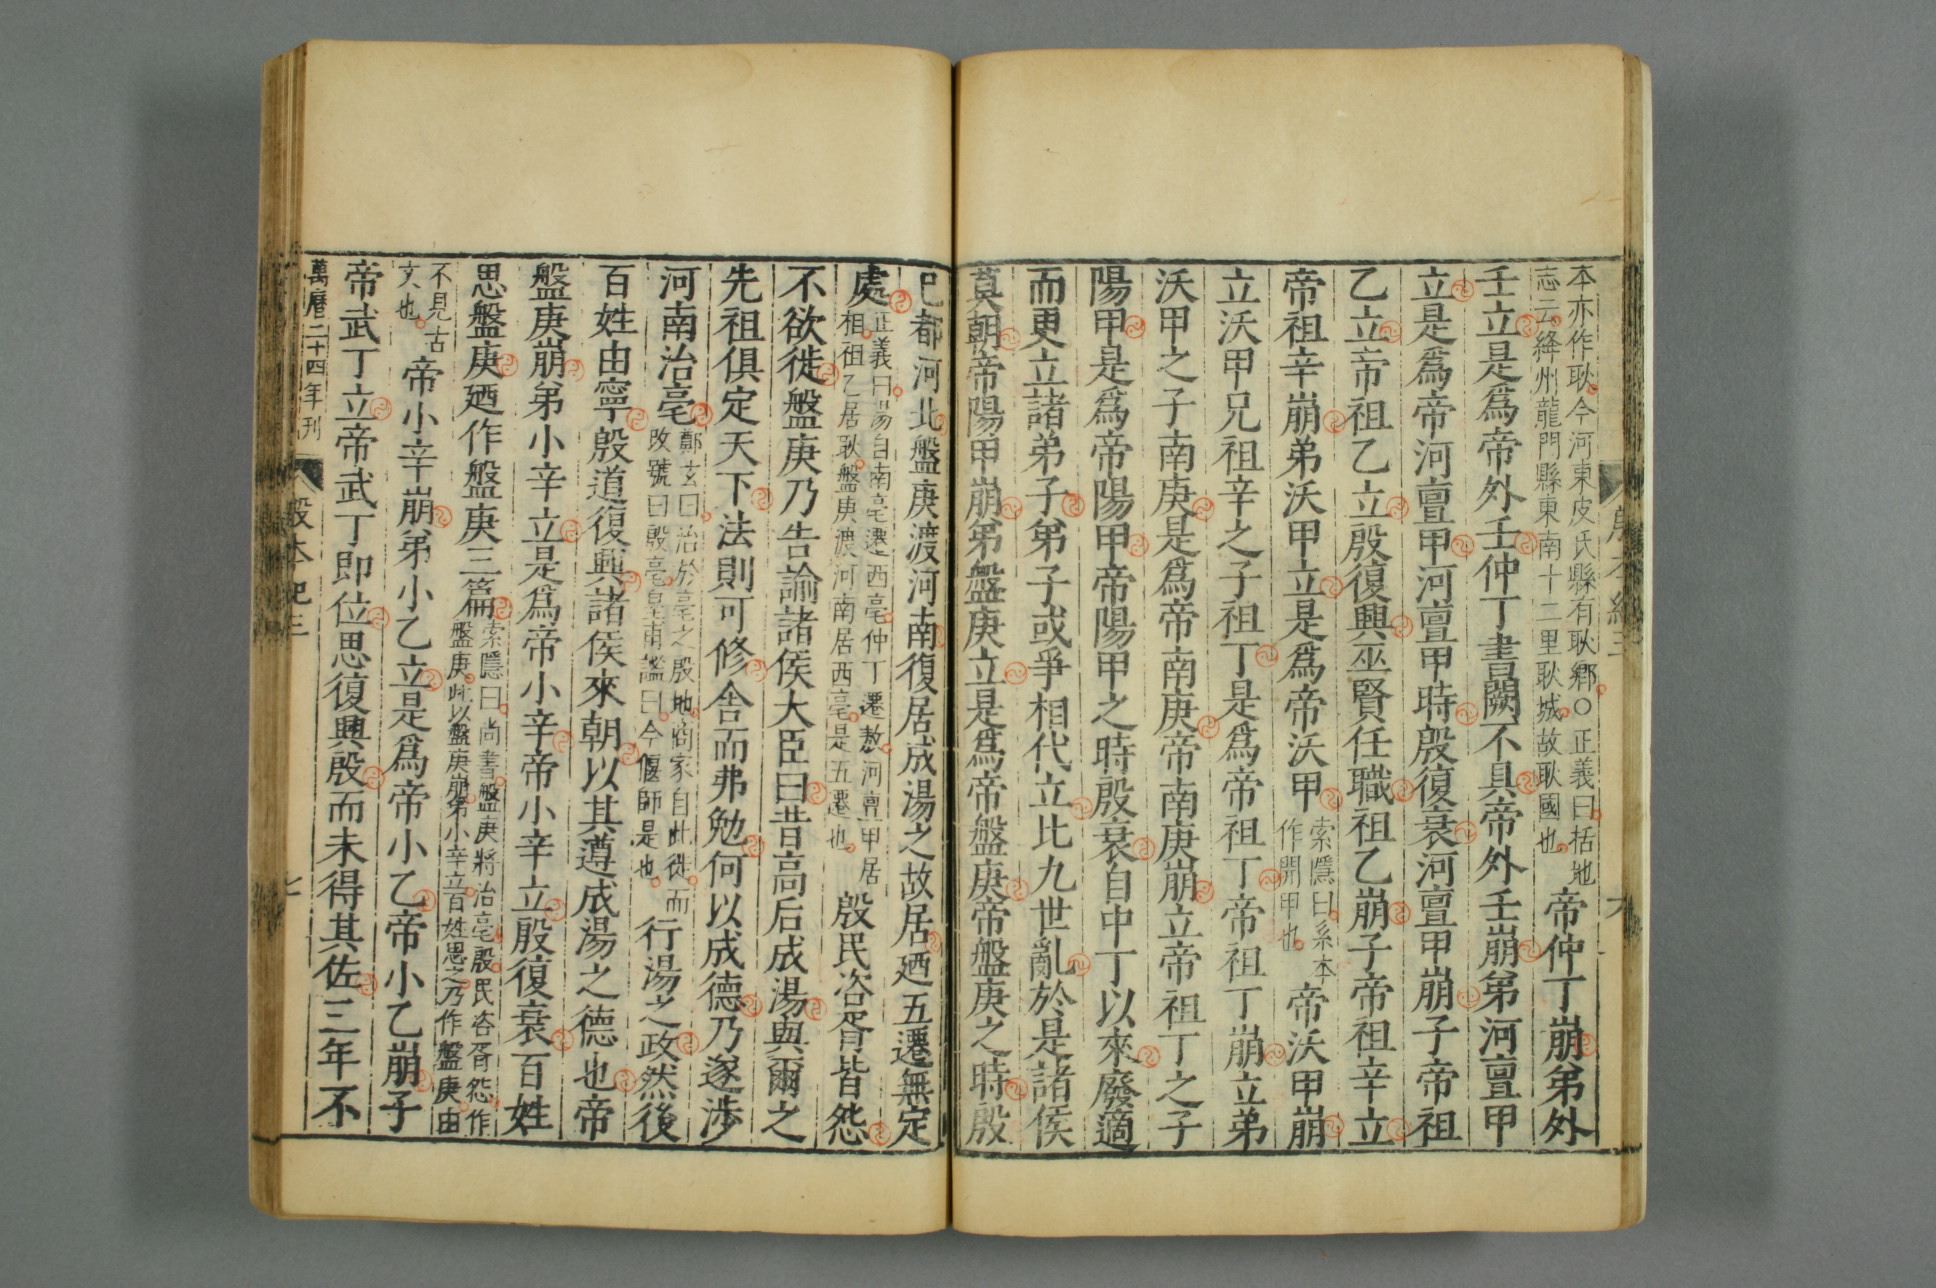 本亦作耿今河東皮氏縣有耿鄉○正義曰括地
志云絳州龍門縣東南十二里耿城故耿國也
帝仲丁崩弟外
壬立是爲帝外壬仲丁書闕不具帝外壬崩弟河亶甲
立是爲帝河亶甲河亶甲時殷復衰河亶甲崩子帝祖
乙立帝祖乙立殷復興巫賢任職祖乙崩子帝祖辛立
帝祖辛崩弟沃甲立是爲帝沃甲
索隱曰系本
作開甲也
帝沃甲崩
立沃甲兄祖辛之子祖丁是爲帝祖丁帝祖丁崩立弟
沃甲之子南庚是爲帝南庚帝南庚崩立帝祖丁之子
陽甲是爲帝陽甲帝陽甲之時殷衰自中丁以來廢適
而更立諸弟子弟子或爭相代立比九世亂於是諸侯
莫朝帝陽甲崩弟盤庚立是爲帝盤庚帝盤庚之時殷
已都河北盤庚渡河南復居成湯之故居廼五遷無定
處
正義曰湯自南亳遷西亳仲丁遷敖河亶甲居
相祖乙居耿盤庚渡河南居西亳是五遷也
殷民咨胥皆怨
不欲徙盤庚乃告諭諸侯大臣曰昔高后成湯與爾之
先祖俱定天下法則可修舍而弗勉何以成德乃遂涉
河南治亳
鄭玄曰治於亳之殷地商家自此徙而
改號曰殷亳皇甫謐曰今偃師是也
行湯之政然後
百姓由寧殷道復興諸侯來朝以其遵成湯之德也帝
盤庚崩弟小辛立是爲帝小辛帝小辛立殷復衰百姓
思盤庚廼作盤庚三篇
索隱曰尚書盤庚將治亳殷民咨胥怨作
盤庚此以盤庚崩弟小辛立百姓思之乃作盤庚由
不見古
文也
帝小辛崩弟小乙立是爲帝小乙帝小乙崩子
帝武丁立帝武丁即位思復興殷而未得其佐三年不
萬曆二十四年刊
殷本紀三
七